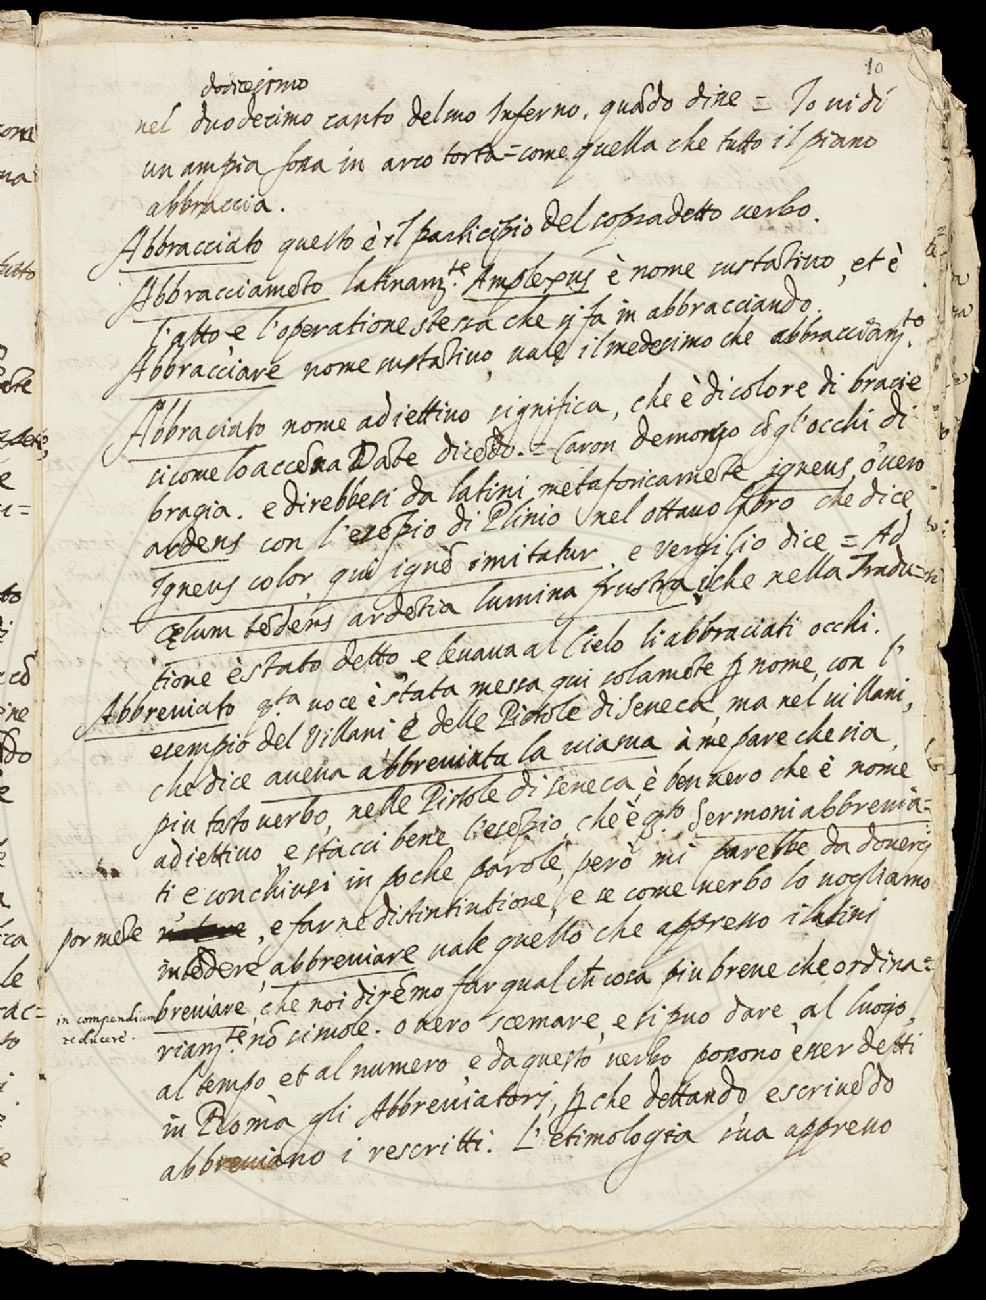 10
dodicesimo
nel duodecimo canto del suo Inferno. quãdo dice = Io uidi
un ampia fossa in arco torta = come quella che tutto il piano
abbraccia.
Abbracciato questo è il participio del sopradetto uerbo.
Abbracciamẽto latinamte. Amplexus è nome sustãtiuo, et è
l'atto e l'operatione stessa che si fa in abbracciando,
Abbracciare nome sustãtiuo, uale il medesimo che abbracciamto.
Abbraciato nome adiettiuo significa, che è di colore di bracie
sicome lo accẽna Dãte dicẽdo. = Caron demonio cõ gl'occhi di
bragia. e direbbesi da latini metaforicamẽte igneus, o uero
ardens con l'esẽpio di Plinio nel ottauo libro che dice
Igneus color, qui ignẽ imitatur. e Vergilio dice = Ad
cælum tẽdens ardẽtia lumina frustra, il che nella Tradu=
tione è stato detto e leuaua al Cielo li abbraciati occhi.
Abbreuiato qta uoce è stata messa qui solamẽte p nome, con l'
esempio del Villani e delle Pistole di Seneca, ma nel uillani,
che dice aueua abbreuiata la uia sua à me pare che sia
piu tosto uerbo, nelle Pistole di Seneca, è ben uero che è nome
adiettiuo, e stacci bene l'esẽpio, che è qto Sermoni abbreuia=
ti e conchiusi in poche parole, però mi parebbe da douersi
por mẽte, e farne distintintione, e se come uerbo lo uogliamo
intẽdere, abbreuiare uale quello che appresso i latini
breuiare, che noi dirẽmo far qual chẽ cosa piu breue che ordina=
in compendium
reducere.
riamte. nõ si uole. o uero scemare, e si puo dare, al luogo,
al tempo et al numero, e da questo uerbo possono esser detti
in Roma gli Abbreuiatori, p che dettando e scriuẽdo
abbreuiano i rescritti. L'etimologia sua appresso